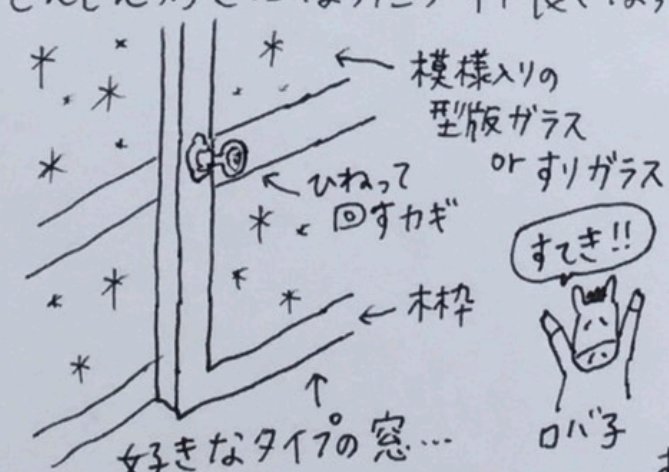 模様入りの
型版ガラス
or すりガラス
ひねって
回すカギ
すてき!!
木枠
好きなタイプの窓…
ロバ子